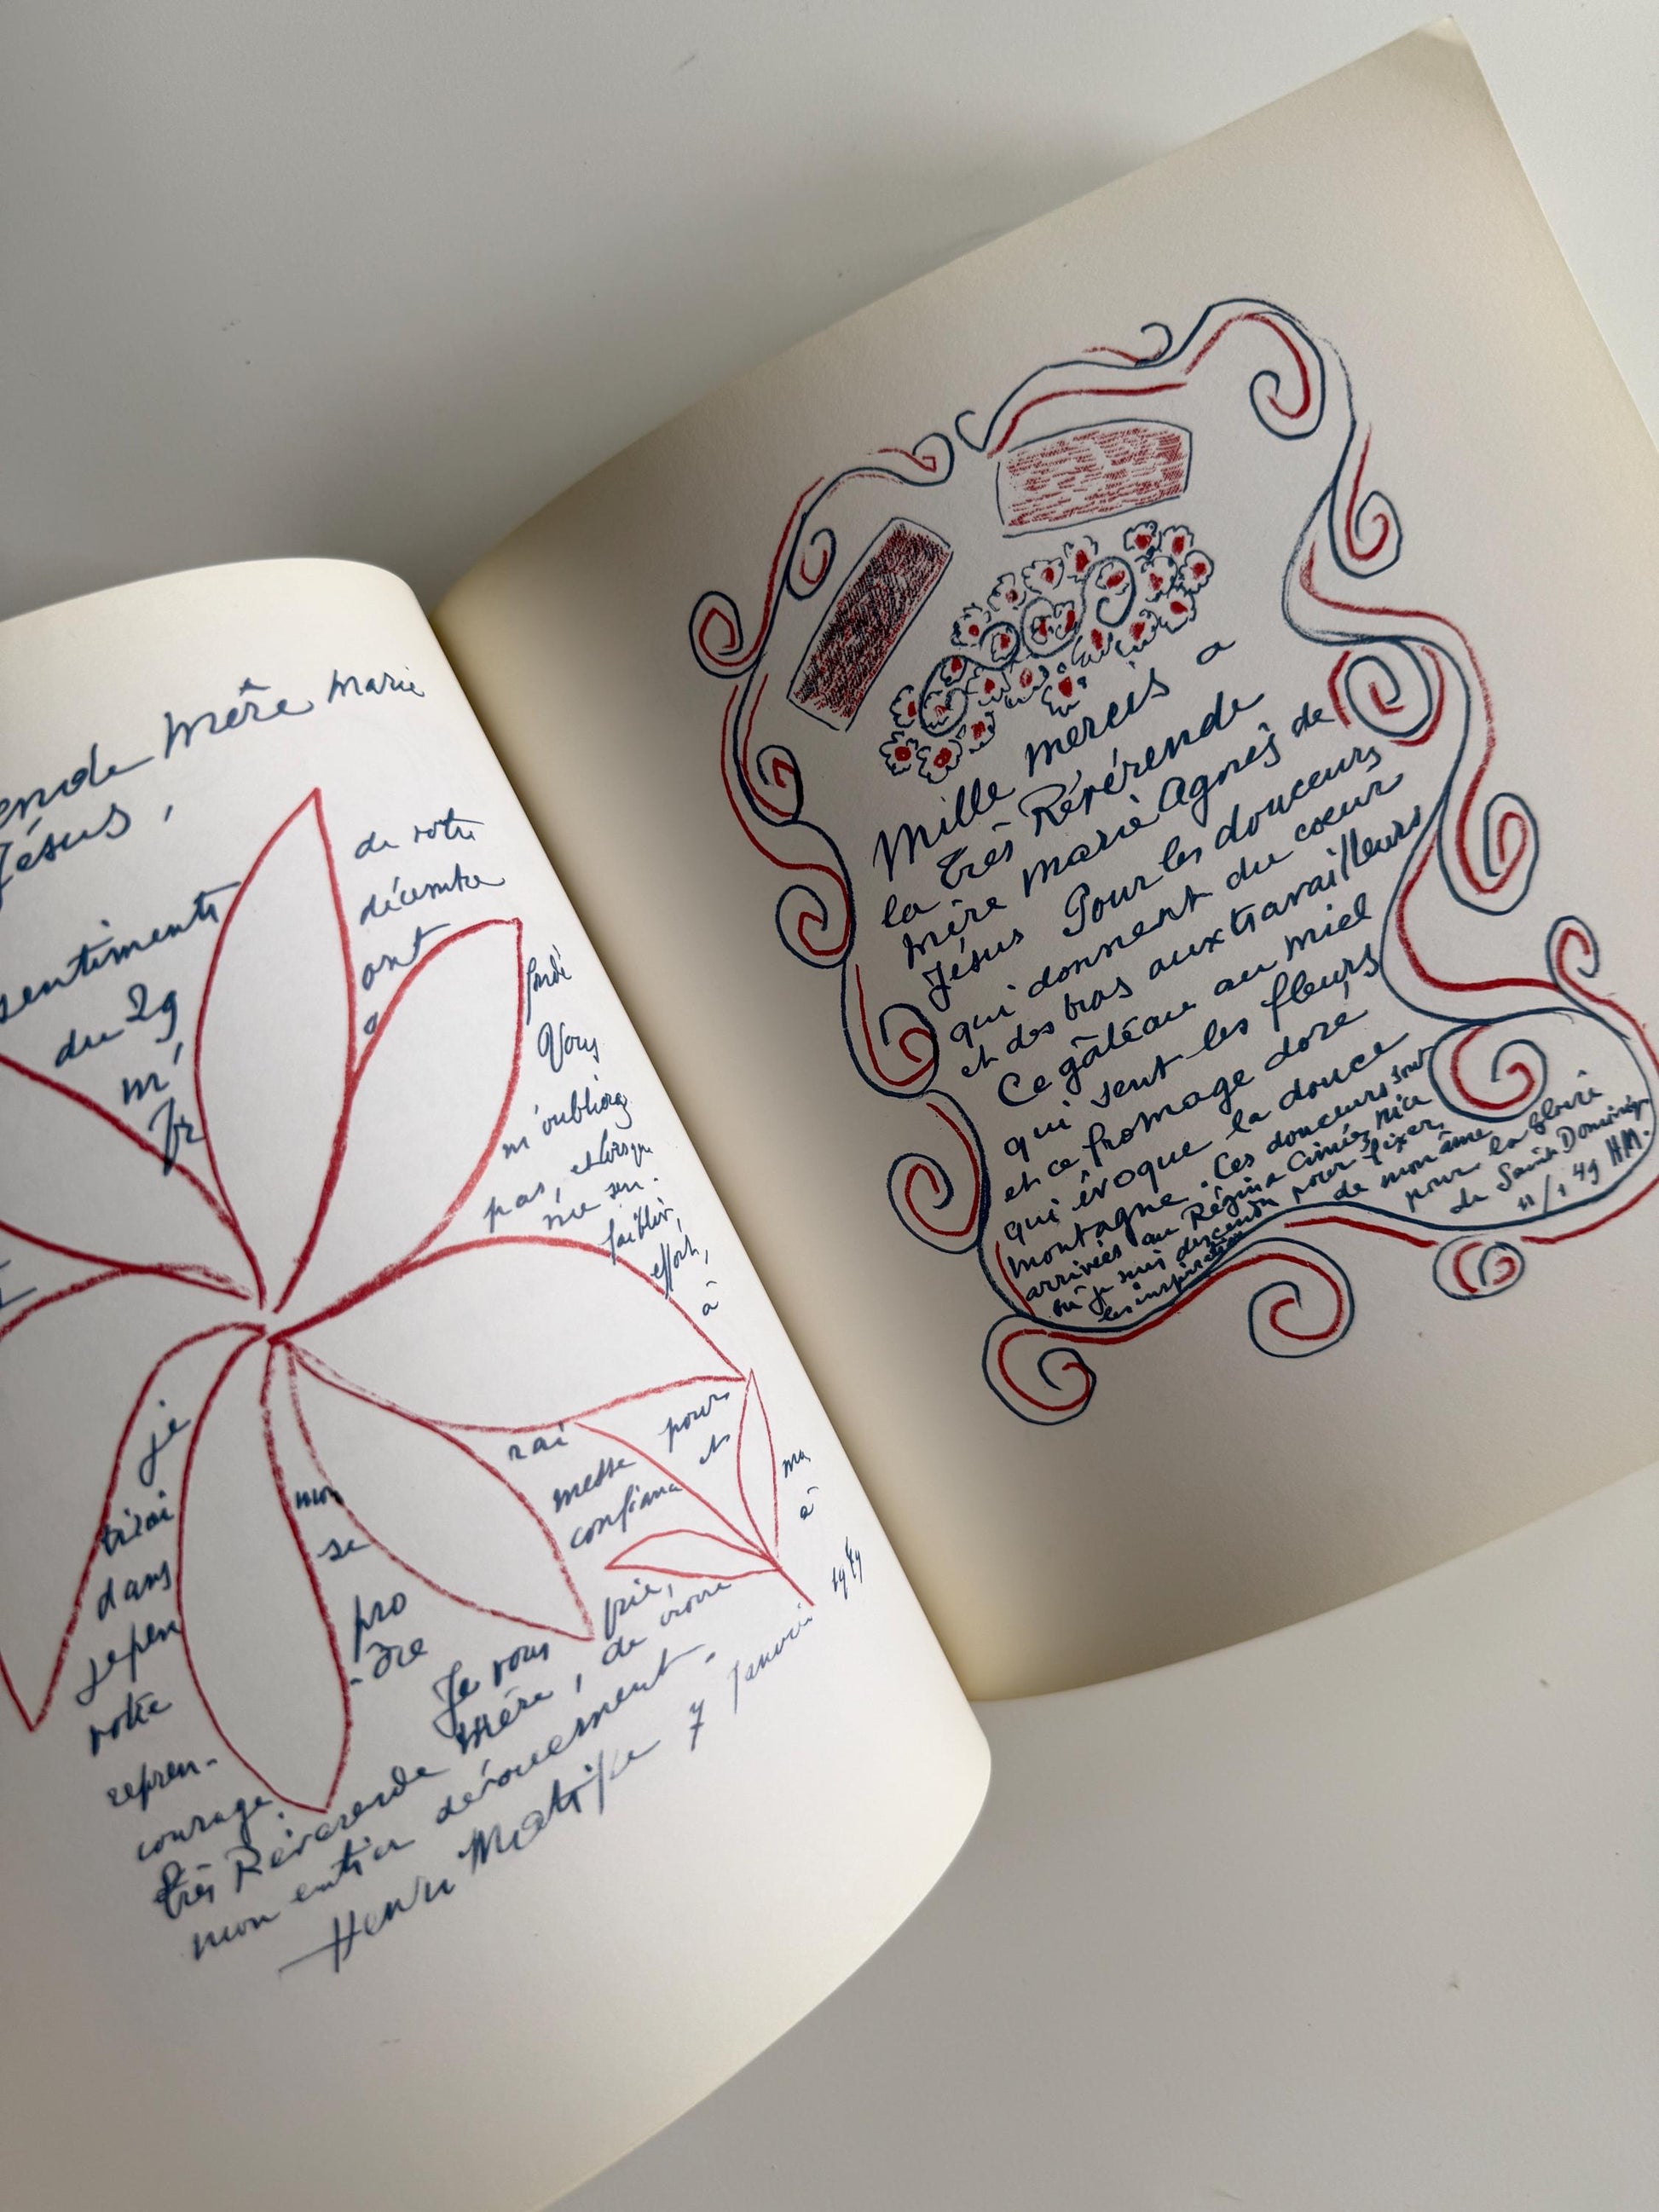 ende Mère Marie
Jésus,
sentiments
de votre
du 29
décembre
m'
ont
a
Vous
m'oubliez
pas, et lorsque
faiblir,
effort,
à
je
dans
votre
repren-
courage.
mon
se
pro
rai
messe pour
confiance et
ma
à
Je vous prie,
Très Révérende Mère, de croire
mon entier dévouement.
Henri Matisse 7 Janvier 1949
Mille mercis a
la très Révérende
Mère Marie Agnès de
Jésus Pour les douceurs
qui donnent du coeur
et des bras aux travailleurs
Ce gâteau au miel
qui sent les fleurs
et ce fromage doré
qui évoque la douce
montagne. Ces douceurs sont
arrivées au Régina Cimiez, Nice
où je suis descendu pour fixer,
les inspirations de mon âme
pour la gloire
de Saint Dominique
11/1 49 HM.